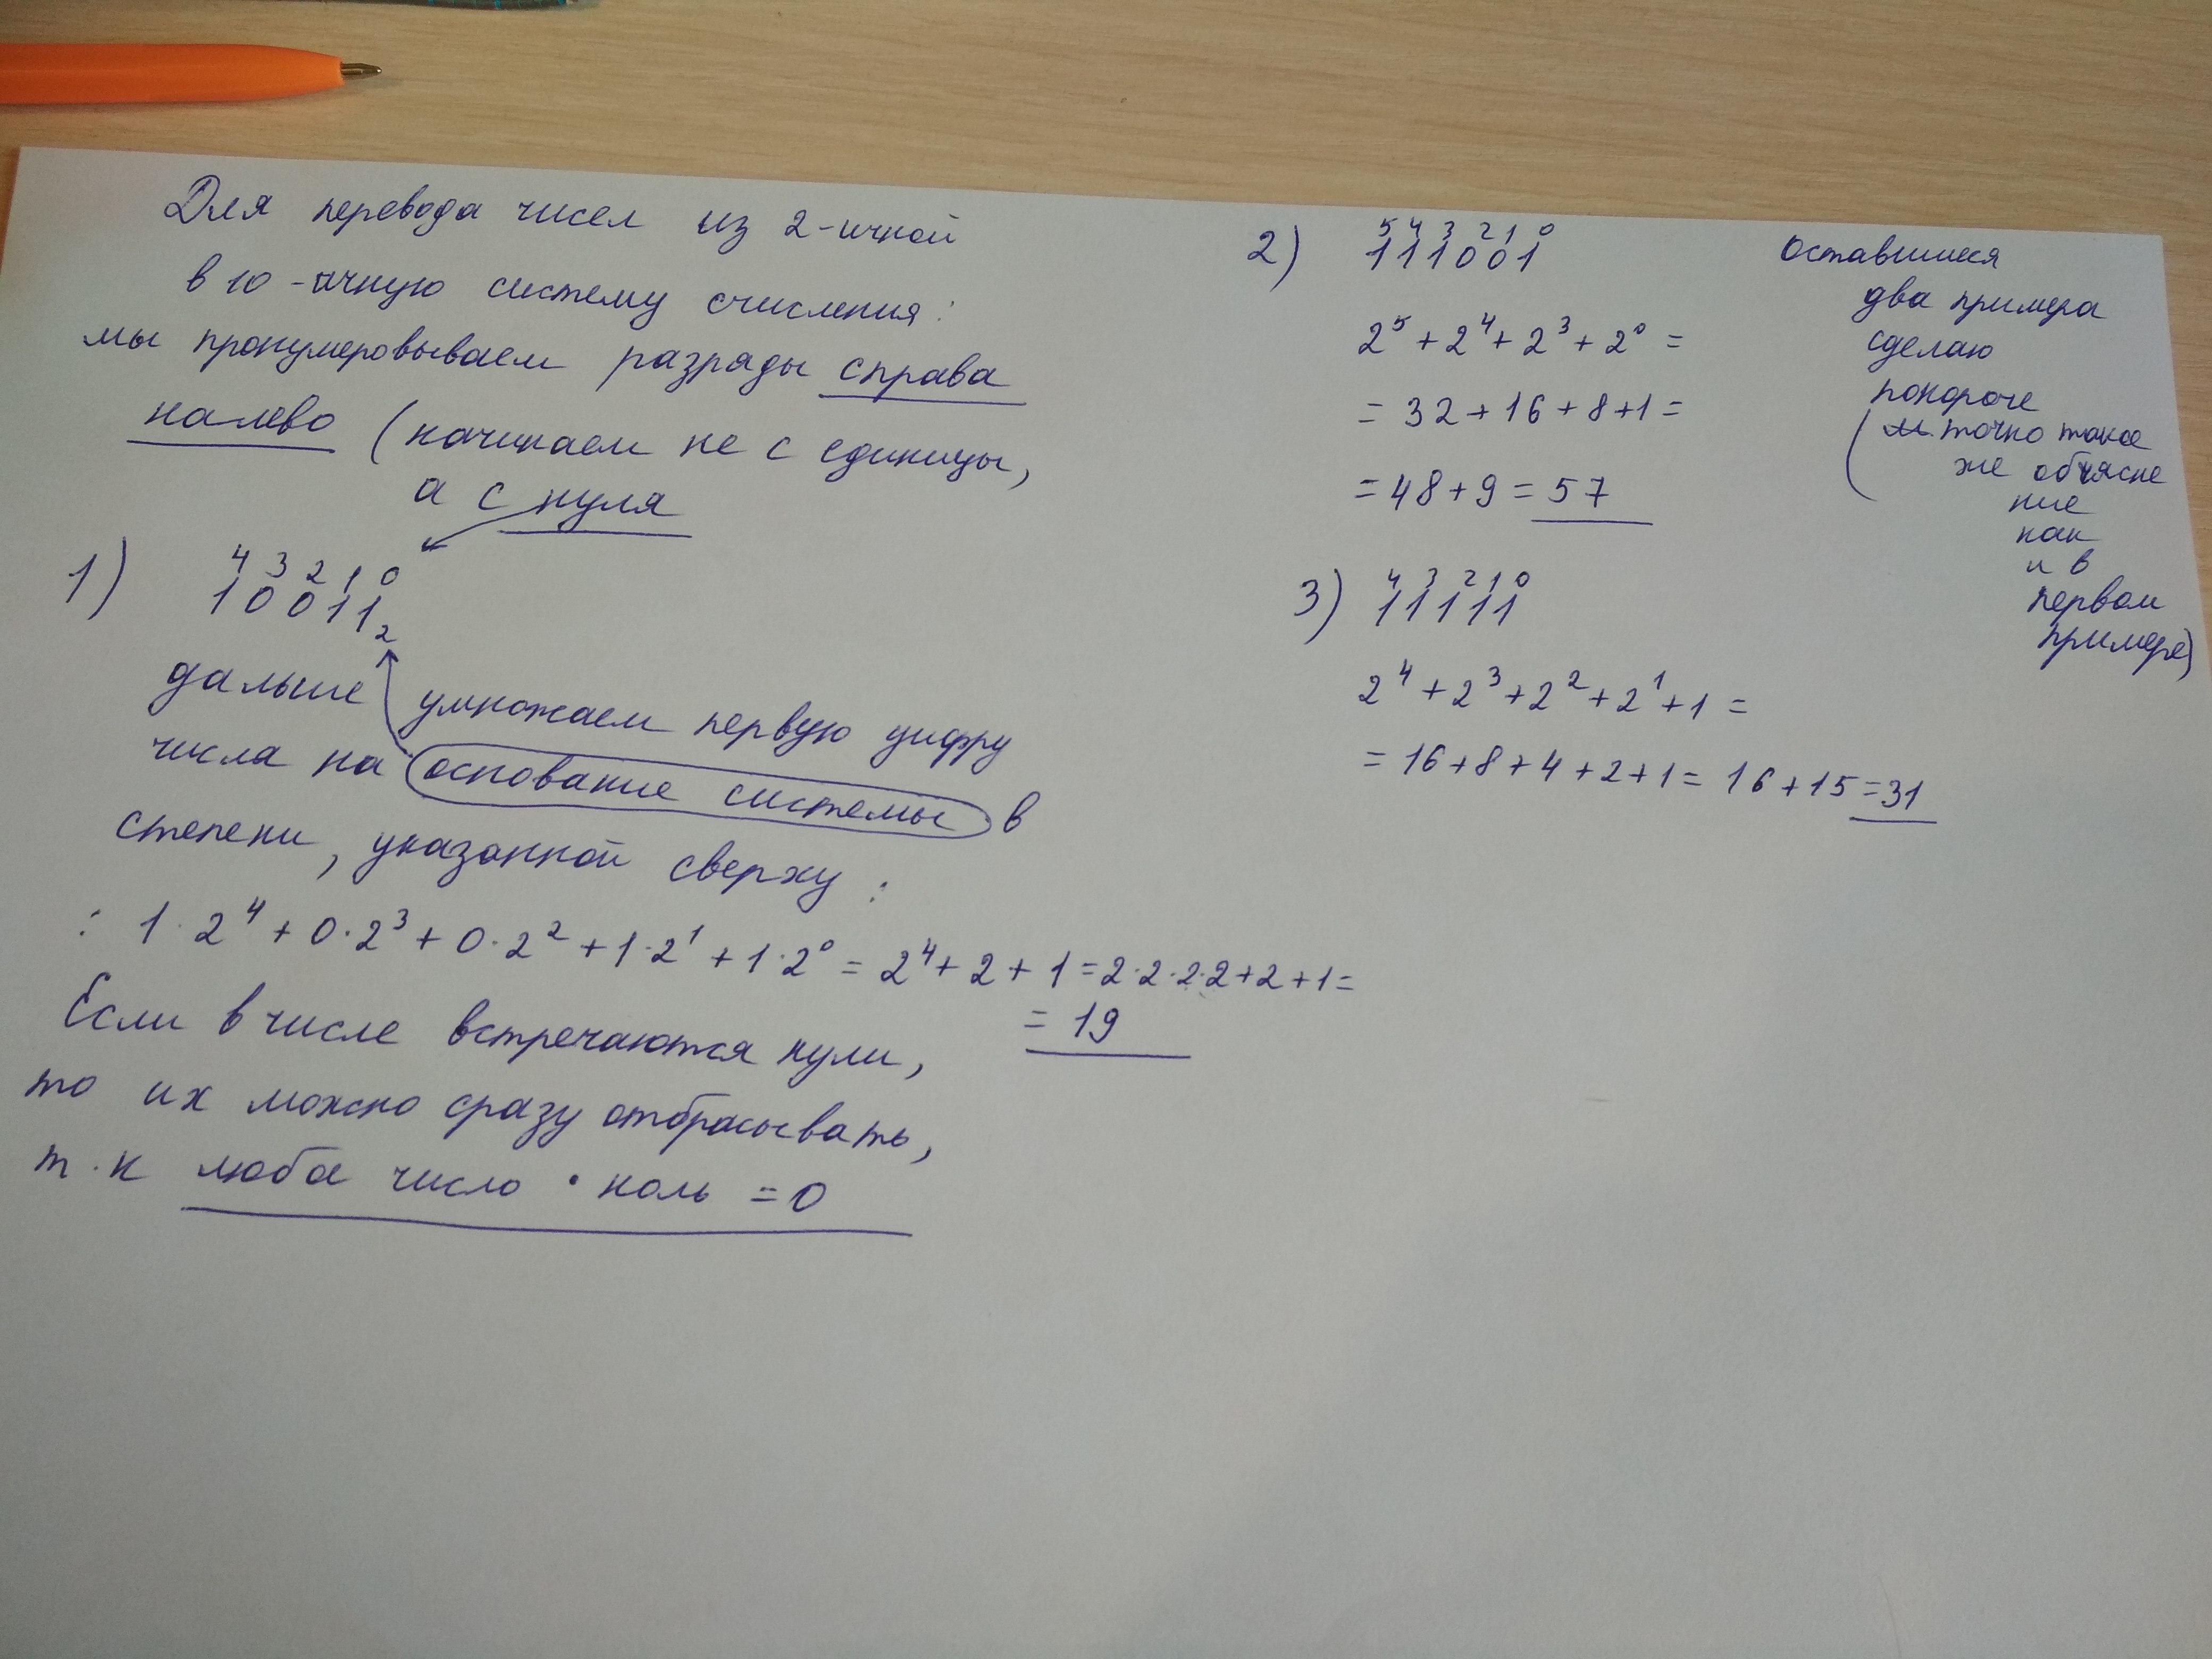 Для перевода чисел из 2-ичной
в 10-ичную систему счисления:
мы пронумеровываем разряды справа
налево (начинаем не с единицы,
а с нуля
1) 4 3 2 1 0
10011₂
дальше умножаем первую цифру
числа на основание системы в
степени, указанной сверху:
: 1·2⁴+0·2³+0·2²+1·2¹+1·2⁰=2⁴+2+1=2·2·2·2+2+1=
= 19
Если в числе встречаются нули,
то их можно сразу отбрасывать,
т.к любое число · ноль = 0
2) 5 4 3 2 1 0
111001
2⁵+2⁴+2³+2⁰=
=32+16+8+1=
=48+9=57
3) 4 3 2 1 0
11111
2⁴+2³+2²+2¹+1=
=16+8+4+2+1=16+15=31
оставшиеся
два примера
сделаю
покороче
(точно такое
же объясне
ние
как
и в
первом
примере)